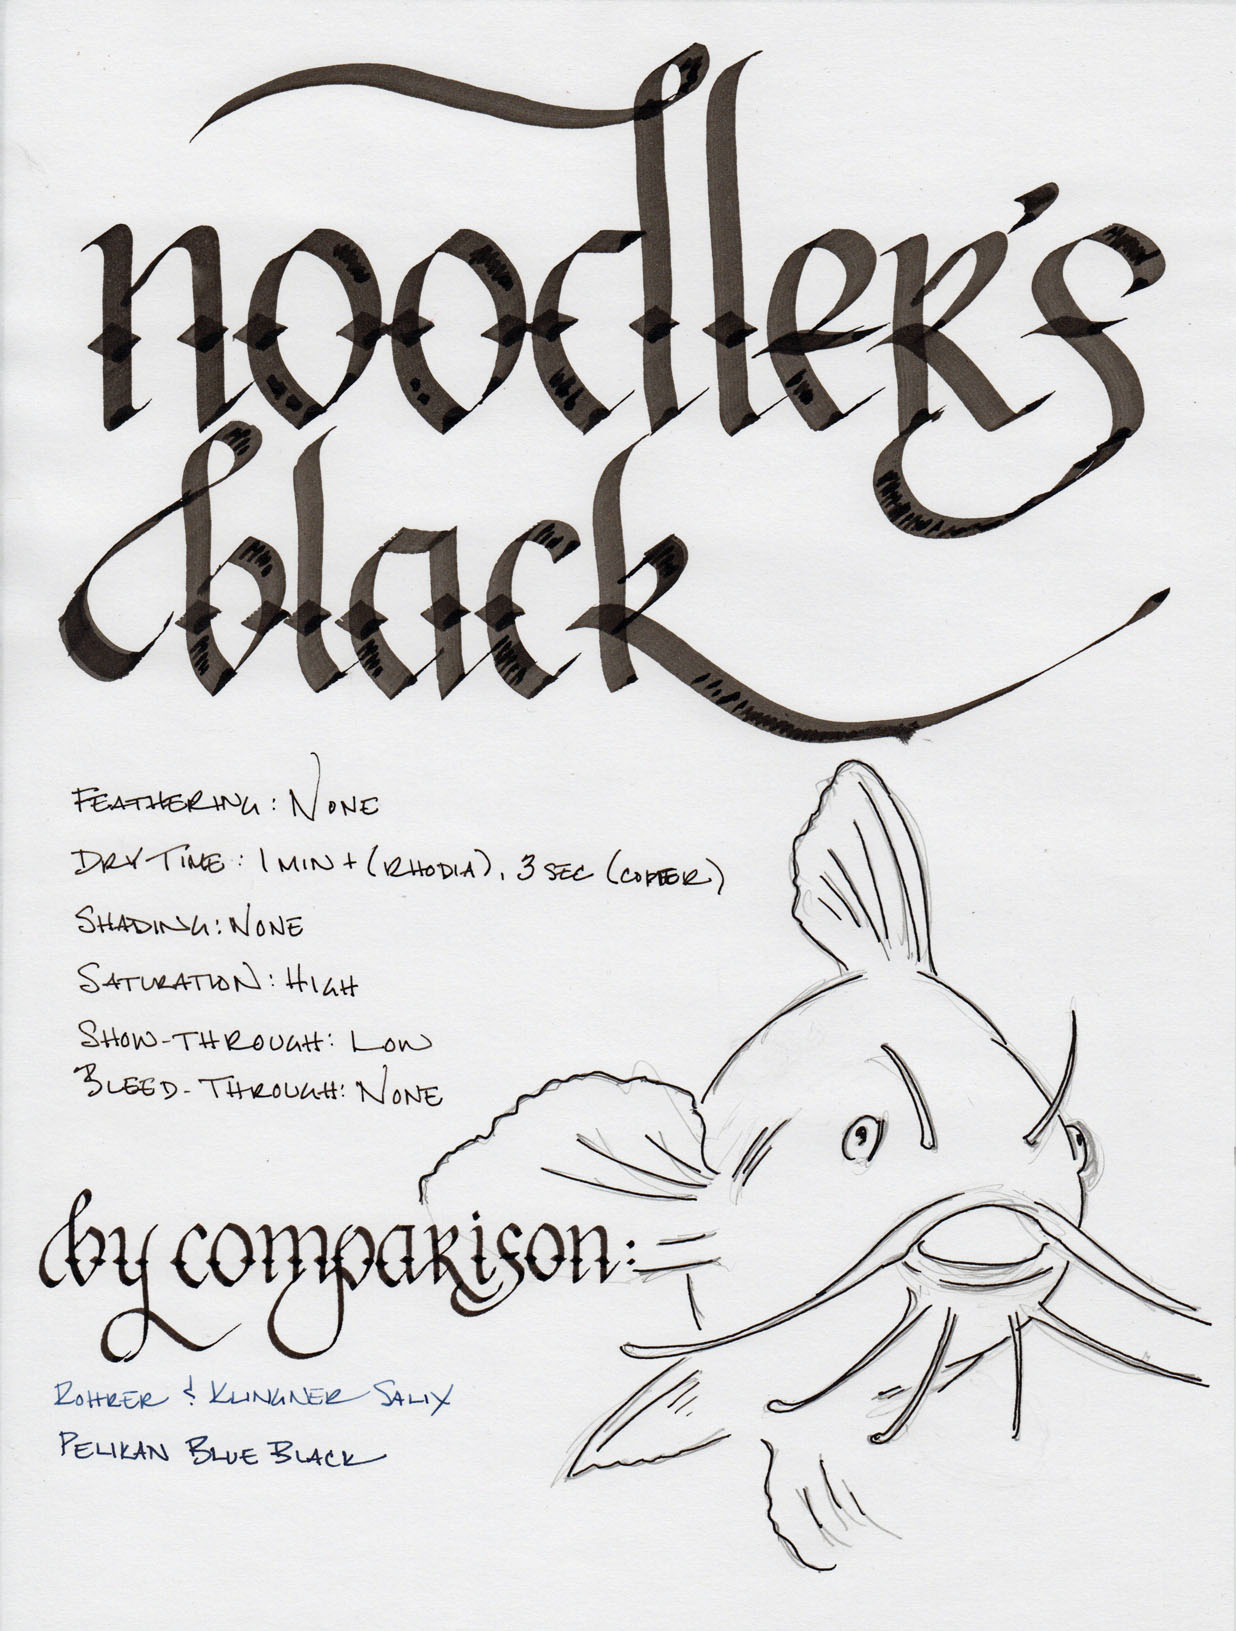 noodler's
black
Feathering: None
Dry Time: 1 min + (Rhodia), 3 sec (copier)
Shading: None
Saturation: High
Show-through: Low
Bleed-through: None
by comparison:
Rohrer & Klingner Salix
Pelikan Blue Black